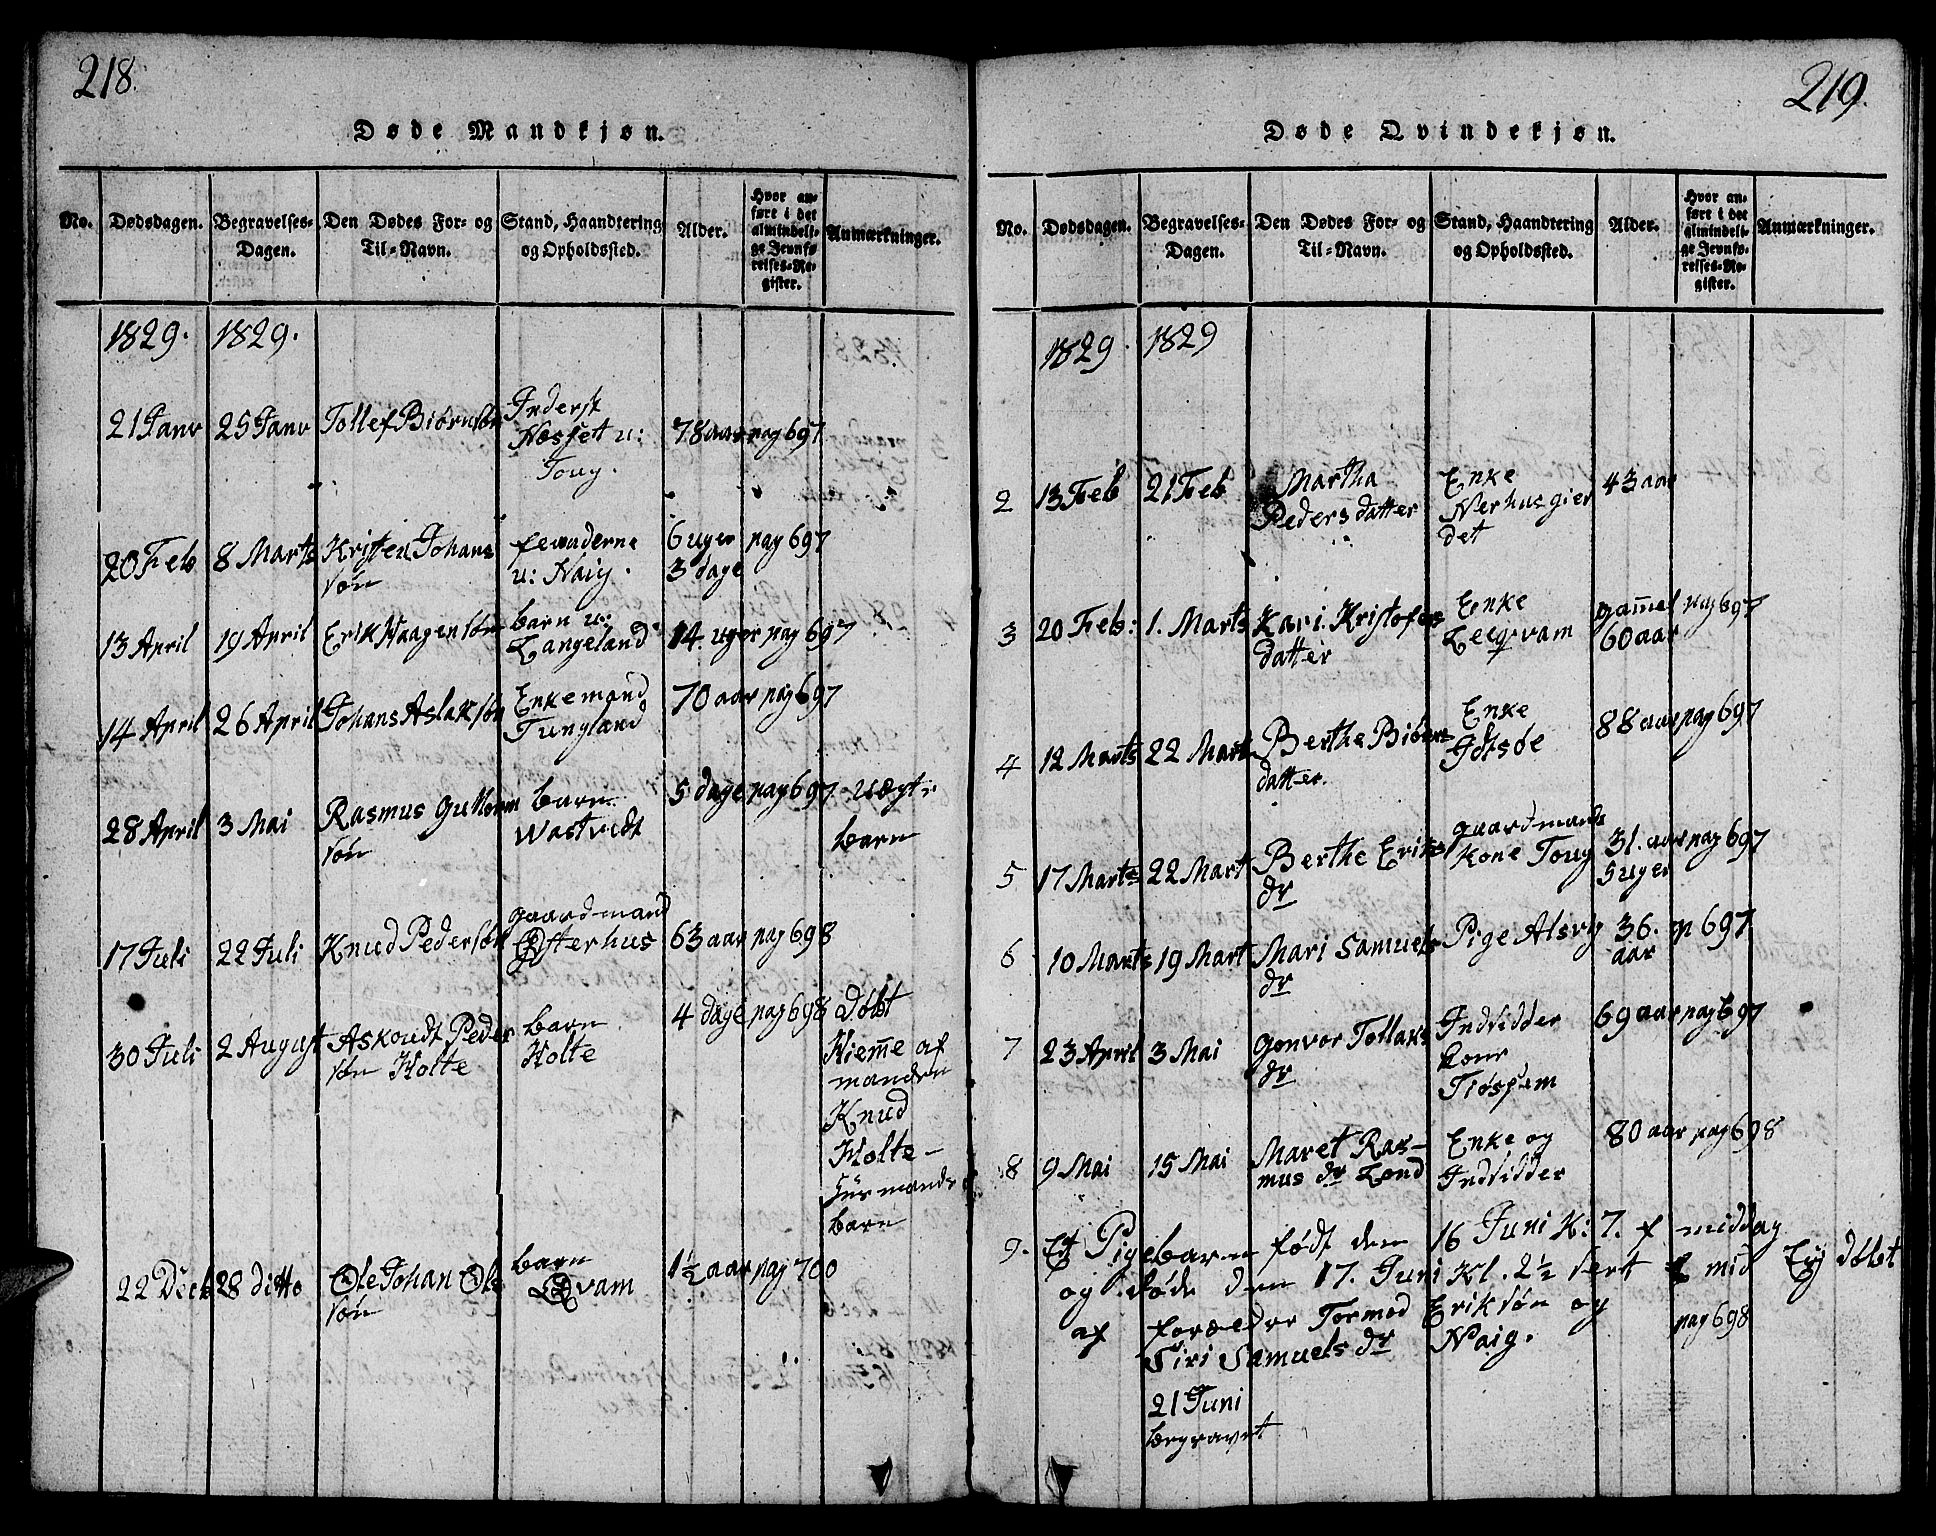 218.
Døde Mandkjøn.
No. Dødsdagen. Begravelses-Dagen. Den Dødes For- og Til-Navn. Stand, Haandtering og Opholdssted. Alder. Hvor anføre i det almindelige Jevnførelses-Register. Anmærkninger.
1829. 1829.
21 Janv 25 Janv Tollef Biørnsøn Inderst
Næsset u:
Toug.
78 aar pag 697
20 Feb 8 Marts Kristen Johans
søn
u: Naig.
6 uger pag 697
3 dage
13 April 19 April Erik Haagensøn barn u:
Langeland
14. uger pag 697
14 April 26 April Johans Aslaksøn Enkemand
Tungland
70 aar pag 697
28 April 3 Mai Rasmus Guttorm
søn
barn
Wastvedt
5 dage pag 697 uægt:
barn
17 Juli 22 Juli Knud Pedersøn gaardmand
Østerhus
63 aar pag 698
30 Juli 2 August Askoudt Peder
søn Holte
barn
Holte
4 dage pag 698 Døbt
Hieme af
manden
Knud
Holte-
barn
22 Decb 28 ditto Ole Johan Ols
søn
barn
Qvam
1½ aar pag 700
219.
Døde Qvindekjøn.
No. Dødsdagen. Begravelses-Dagen. Den Dødes For- og Til-Navn. Stand, Haandtering og Opholdssted. Alder. Hvor anføre i det almindelige Jevnførelses-Register. Anmærkninger.
1829. 1829
2 13 Feb 21 Feb Martha
Pedersdatter
Enke
Nerhusgier
det
43 aar
3 20 Feb: 1. Marts Kari Kristofers
datter
Enke
Leeqvam
gamel pag 697
60 aar
4 12 Marts 22 Mart Berthe Biørns
datter.
Enke
Idtsøe
88 aar pag 697
5 17 Marts 22 Mart Berthe Eriks
dr
gaardmands
kone Toug
31. aar pag 697
5 uger
6 10 Marts 19 Mart Mari Samuels
dr
Pige Alsvig
36. p 697
aar
7 23 April 3 Mai Gonvor Tollaks
dr
Indsidder
kone
69 aar pag 697
8 9 Mai 15 Mai Maret Ras-
mus dr Lend
Enke og
Indsidder
80 aar pag 698
9. Et Pigebarn født den 16 Juni K: 7. f middag
og døde den 17. Juni Kl. 2½ mid
Ey døbt
af forælder Tormod Eriksøn og
pag 698
Siri Samuels dr Naig.
21 Juni
begravet